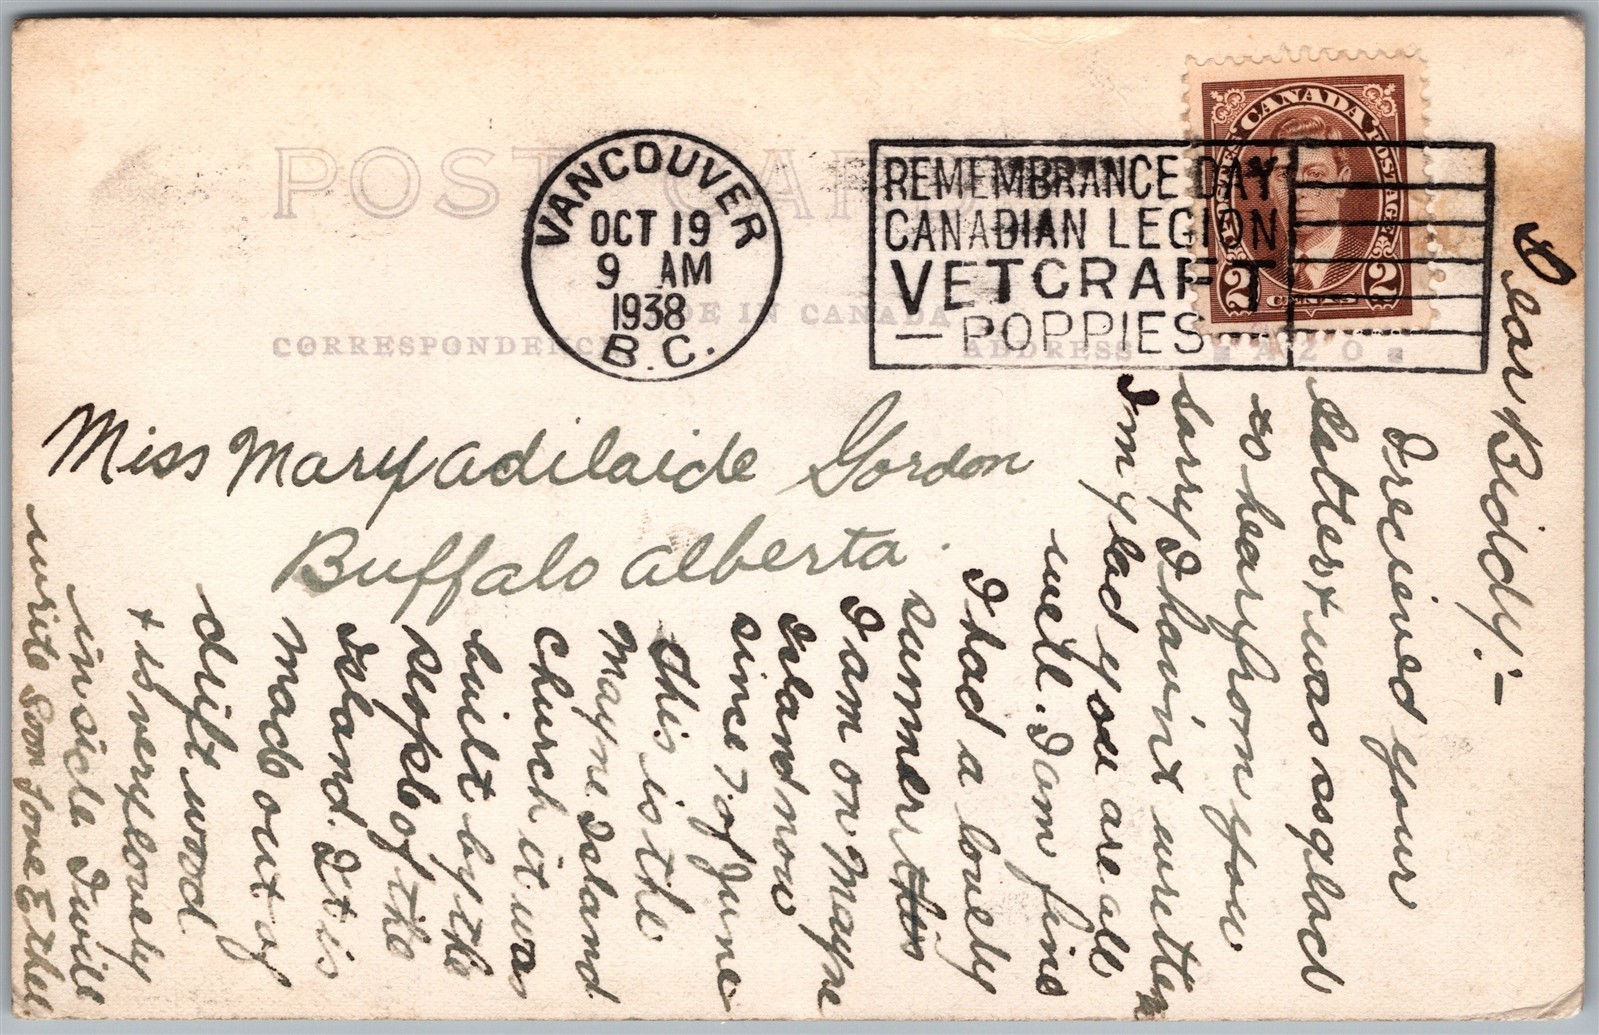 POST CARD
VANCOUVER
OCT 19
9 AM
1938
B.C.
REMEMBRANCE DAY
CANADIAN LEGION
VETCRAFT
— POPPIES —
CANADA
POSTES POSTAGE
2 CENTS 2
MADE IN CANADA
CORRESPONDENCE
ADDRESS
AZO
Miss Mary Adilaide Gordon
Buffalo Alberta.
Dear Biddy:-
I recieved your
letter & was so glad
to hear from you
sorry I havint written
I'm glad you are all
well. I am fine
I had a lovely
summer this
I am on Mayne
Island now
since 7 of June
this is the
Mayne Island
church it was
built by the
people of the
Island. It is
made out of
drift wood
& is very lovely
inside. I will
write soon Love Ethel